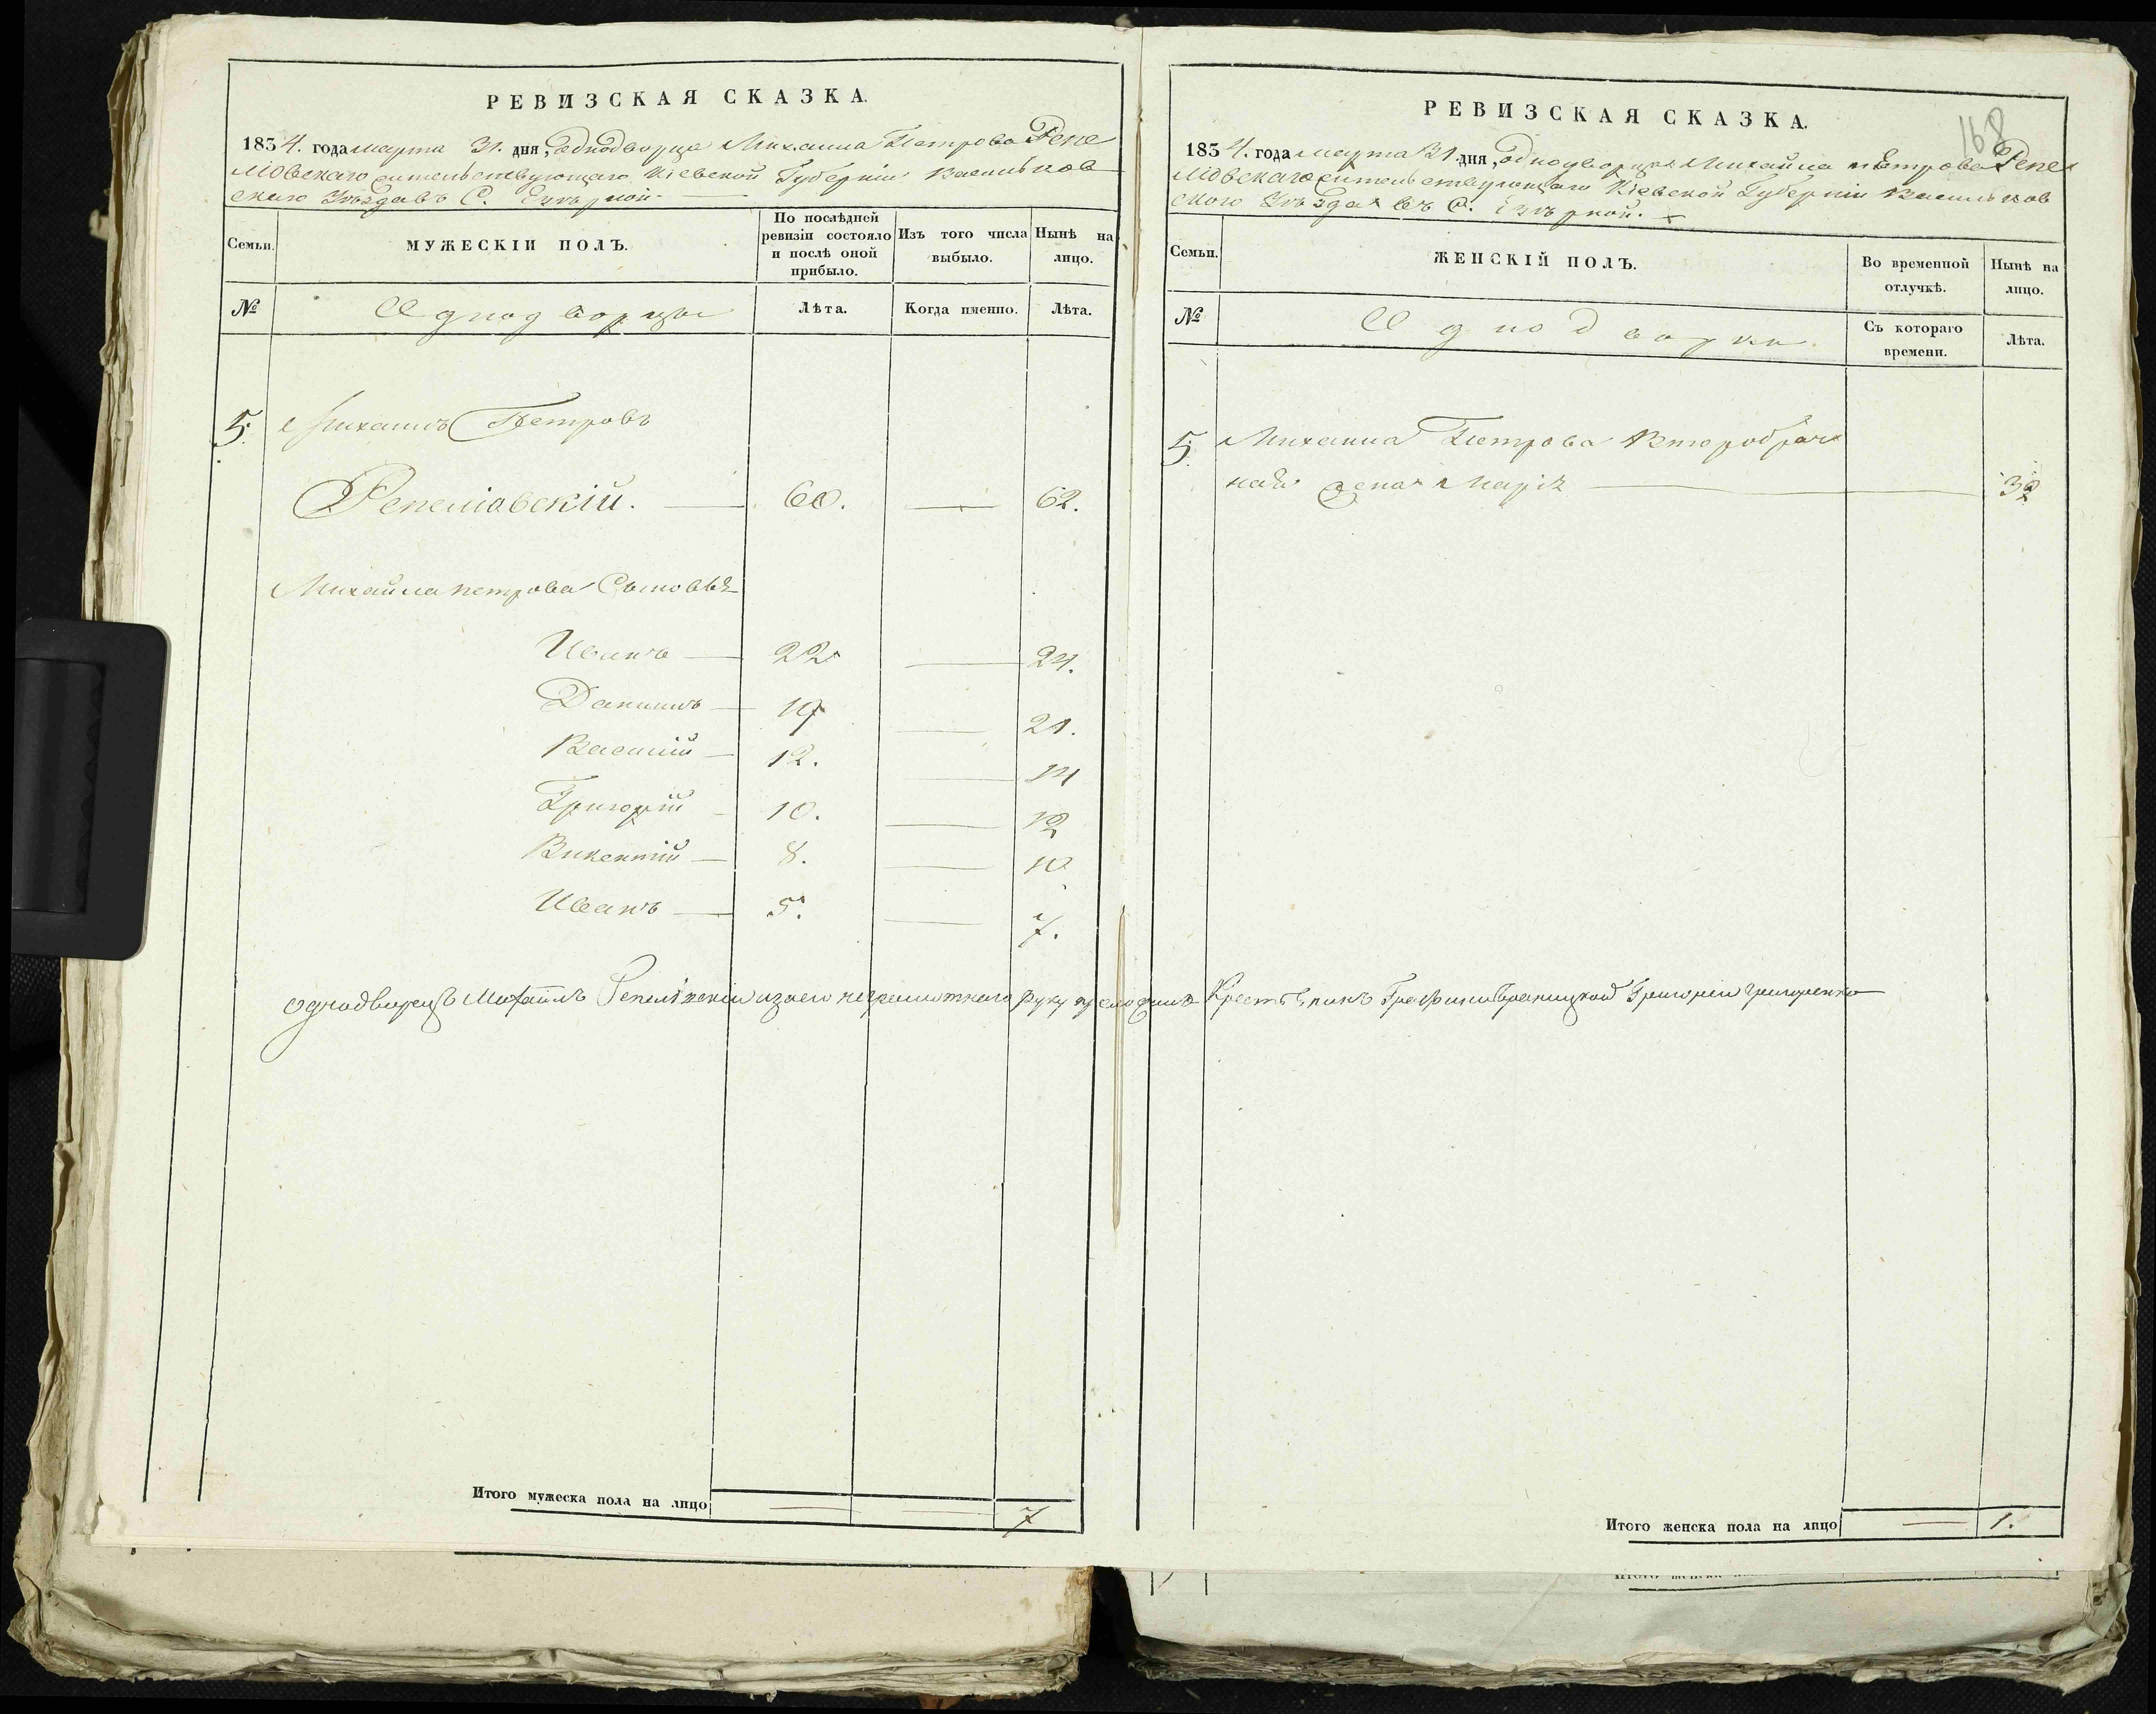 РЕВИЗСКАЯ СКАЗКА.
1834. года марта 31. дня, Однодворца Михаила Петрова Репе
ловскаго жительствующаго Кіевской Губерніи Васильков
скаго Уѣзда въ С.
Семьи.
МУЖЕСКІЙ ПОЛЪ.
По послѣдней ревизіи состояло и послѣ оной прибыло.
Изъ того числа выбыло.
Нынѣ на лицо.
№
Однодворцы
Лѣта.
Когда именно.
Лѣта.
5. Михаилъ Петровъ
60. — 62.
Михайла петрова Сыновья
Иванъ — 22 — 24.
Данилъ — 19 — 21.
Василій — 12. — 14
Григорій — 10. — 12
Викентій — 8. — 10
Иванъ — 5. — 7.
однодворецъ Михаилъ а за его неграмотнаго руку приложилъ Крестьянинъ Графини Браницкой Григорій Григоренко
Итого мужеска пола на лицо — — 7
168
РЕВИЗСКАЯ СКАЗКА.
1834. года марта 31. дня, однодворца Михайла петрова Репе
ловскаго жительствующаго Кіевской Губерніи Васильков
скаго Уѣзда въ С.
Семьи.
ЖЕНСКІЙ ПОЛЪ.
Во временной отлучкѣ.
Нынѣ на лицо.
№
Однодворки
Съ котораго времени.
Лѣта.
5. Михаила Петрова Второбрач
ная жена Марія —
Итого женска пола на лицо — 1.